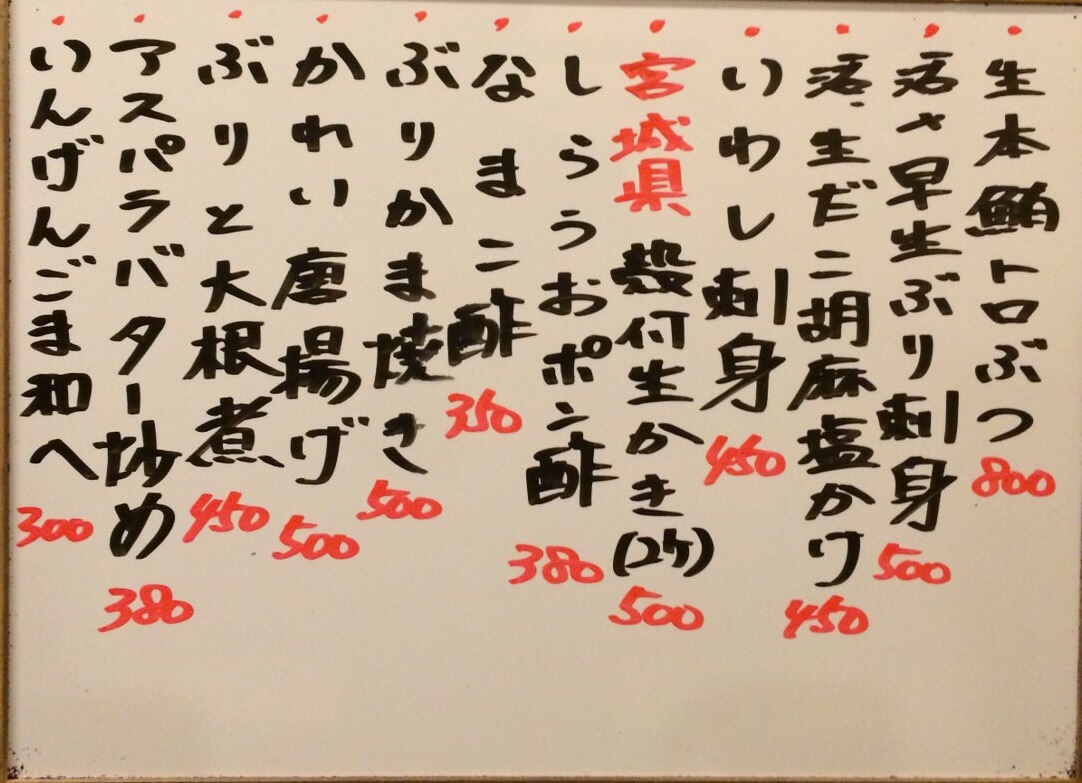 生本鮪トロぶつ 800
活〆早生ぶり刺身 500
活生だこ胡麻塩かけ 450
いわし刺身 450
宮城県 殻付生かき(2ケ) 500
しらうおポン酢 380
なまこ酢 350
ぶりかま焼き 500
かれい唐揚げ 500
ぶりと大根煮 450
アスパラバター炒め 380
いんげんごま和へ 300